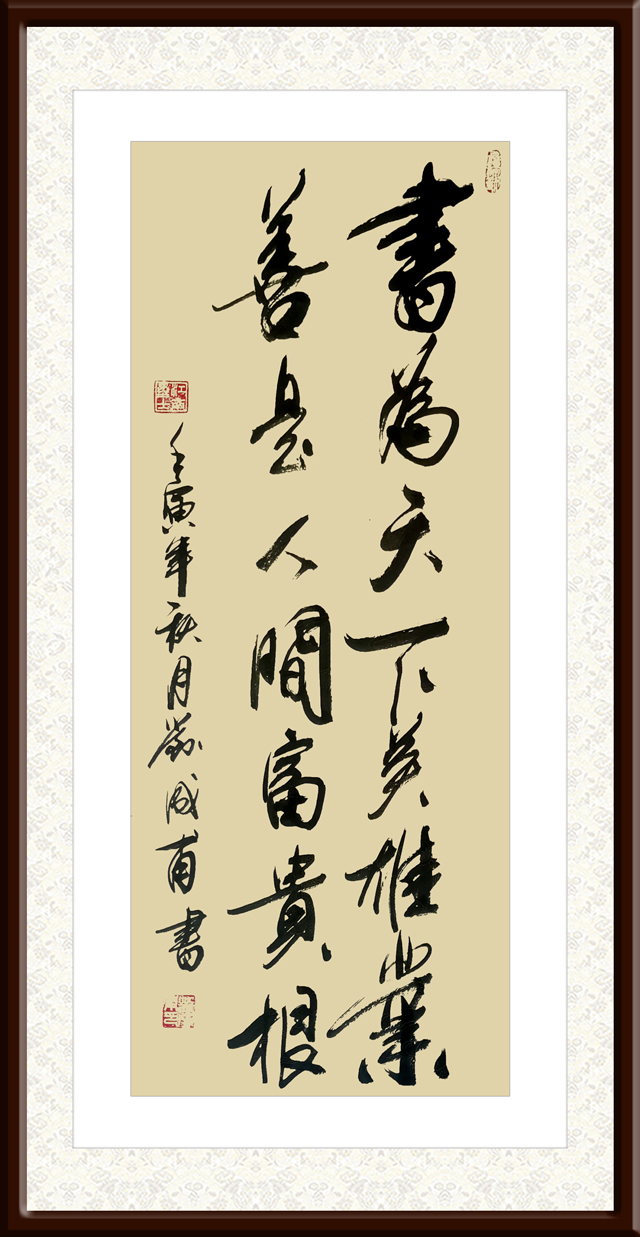 書為天下英雄業
善是人間富貴根
壬寅年秋月 成甫書